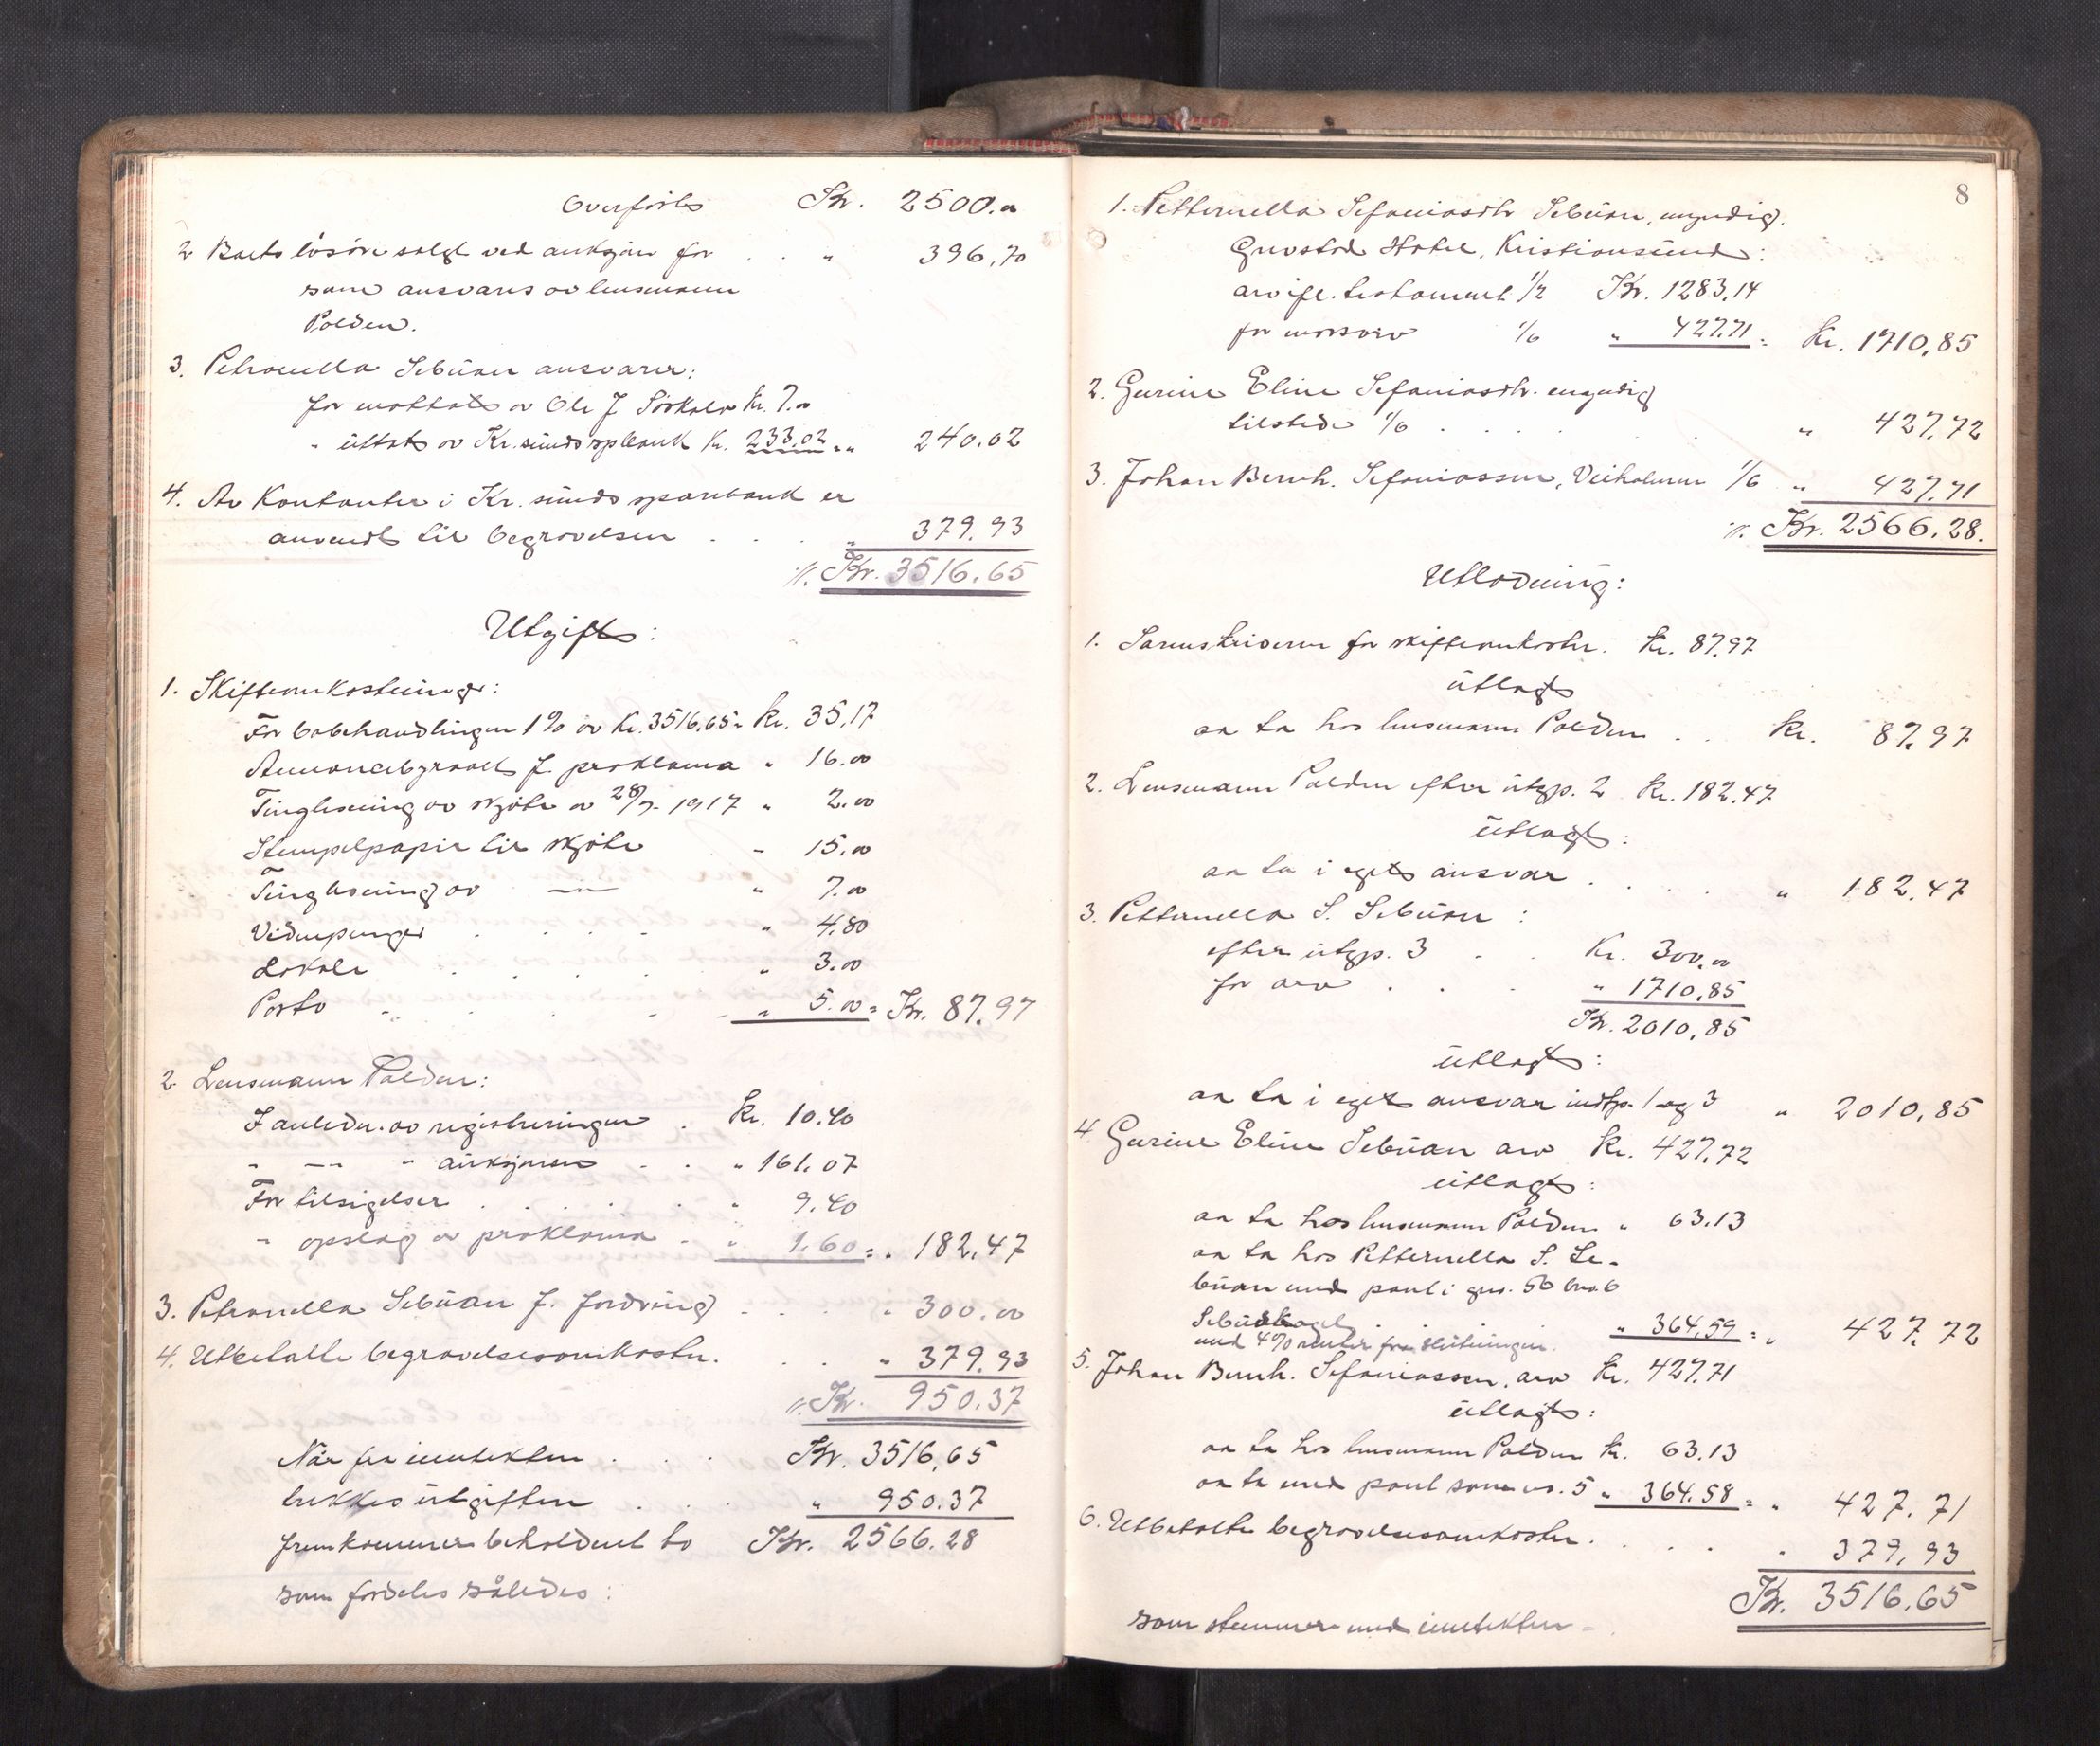 Overførte Kr. 2500.00
2 Boets løsøre solgt ved auksjon for . . " 396,70
som ansvares av lensmann
Polden.
3. Petronella Sebuan ansvarer:
for mottatt av Ole J. Kr. 7.00
" uttatt av Kr.sunds spbank Kr. 233.02 = " 240.02
4. Av Kontanter i Kr.sunds sparebank er
anvendt til begravelsen . . . " 379.93
Kr. 3516.65
Utgift:
1. Skifteomkostninger:
For bobehandlingen 1% av Kr. 3516,65 = Kr. 35,17
f. proklama " 16.00
Tinglesning av skjøte av 28/7- 1917 " 2.00
Stempelpapir til skjøte " 15.00
Tinglesning av —"— " 7.00
Vidnepenger . . . . " 4.80
Lokale . . . . " 3.00
Porto . . . . " 5.00 = Kr. 87.97
2 Lensmann Polden:
I anledn. av registreringen . Kr. 10.40
" —"— " auksjonen . . " 161.07
For tilsigelser . . . . " 9.40
" opslag av proklama . . " 1.60 = " 182.47
3. Petronella Sebuan f. fordring . . . " 300.00
4. Utbetalte begravelsesomkostn. . . " 379.93
Kr. 950.37
Når fra inntekten . . . Kr. 3516,65
trekkes utgiften . . . " 950.37
fremkommer beholdent bo Kr. 2566.28
som fordeles således:
8
1. Petternella Sefaniasdtr Sebuan, myndig.
Hotel, Kristiansund:
arv ifl. testament 1/2 Kr. 1283,14
for morsarv 1/6 " 427.71 = Kr. 1710,85
2. Gurine Eline Sefaniasdtr. myndig
tilstede 1/6 . . . . " 427,72
3. Johan Bernh. Sefaniassen, Veiholmen 1/6 " 427,71
Kr. 2566.28.
Utlodning:
1. Sorenskriveren for skifteomkostn. Kr. 87,97
utlagt
aa ta hos lensmann Polden . . Kr. 87,97
2. Lensmann Polden efter utgp. 2 Kr. 182.47
utlagt:
aa ta i eget ansvar . . . . " 182.47
3. Petternella S. Sebuan :
efter utgp. 3 . . Kr. 300.00
for arv . . . " 1710,85
Kr. 2010,85
utlagt:
aa ta i eget ansvar indtp. 1 og 3 " 2010,85
4. Gurine Eline Sebuan arv Kr. 427,72
utlagt:
aa ta hos lensmann Polden " 63.13
aa ta hos Petternella S. Se-
buan med pant i gnr. 56 bnr. 6
. . . " 364,59 = " 427,72
med 4% renter fra slutningen.
5. Johan Bernh. Sefaniassen, arv Kr. 427,71
utlagt:
aa ta hos lensmann Polden Kr. 63.13
aa ta med pant som no. 5 " 364.58 = " 427.71
6. Utbetalte begravelsesomkostn. . . . " 379,93
Kr. 3516,65
som stemmer med inntekten